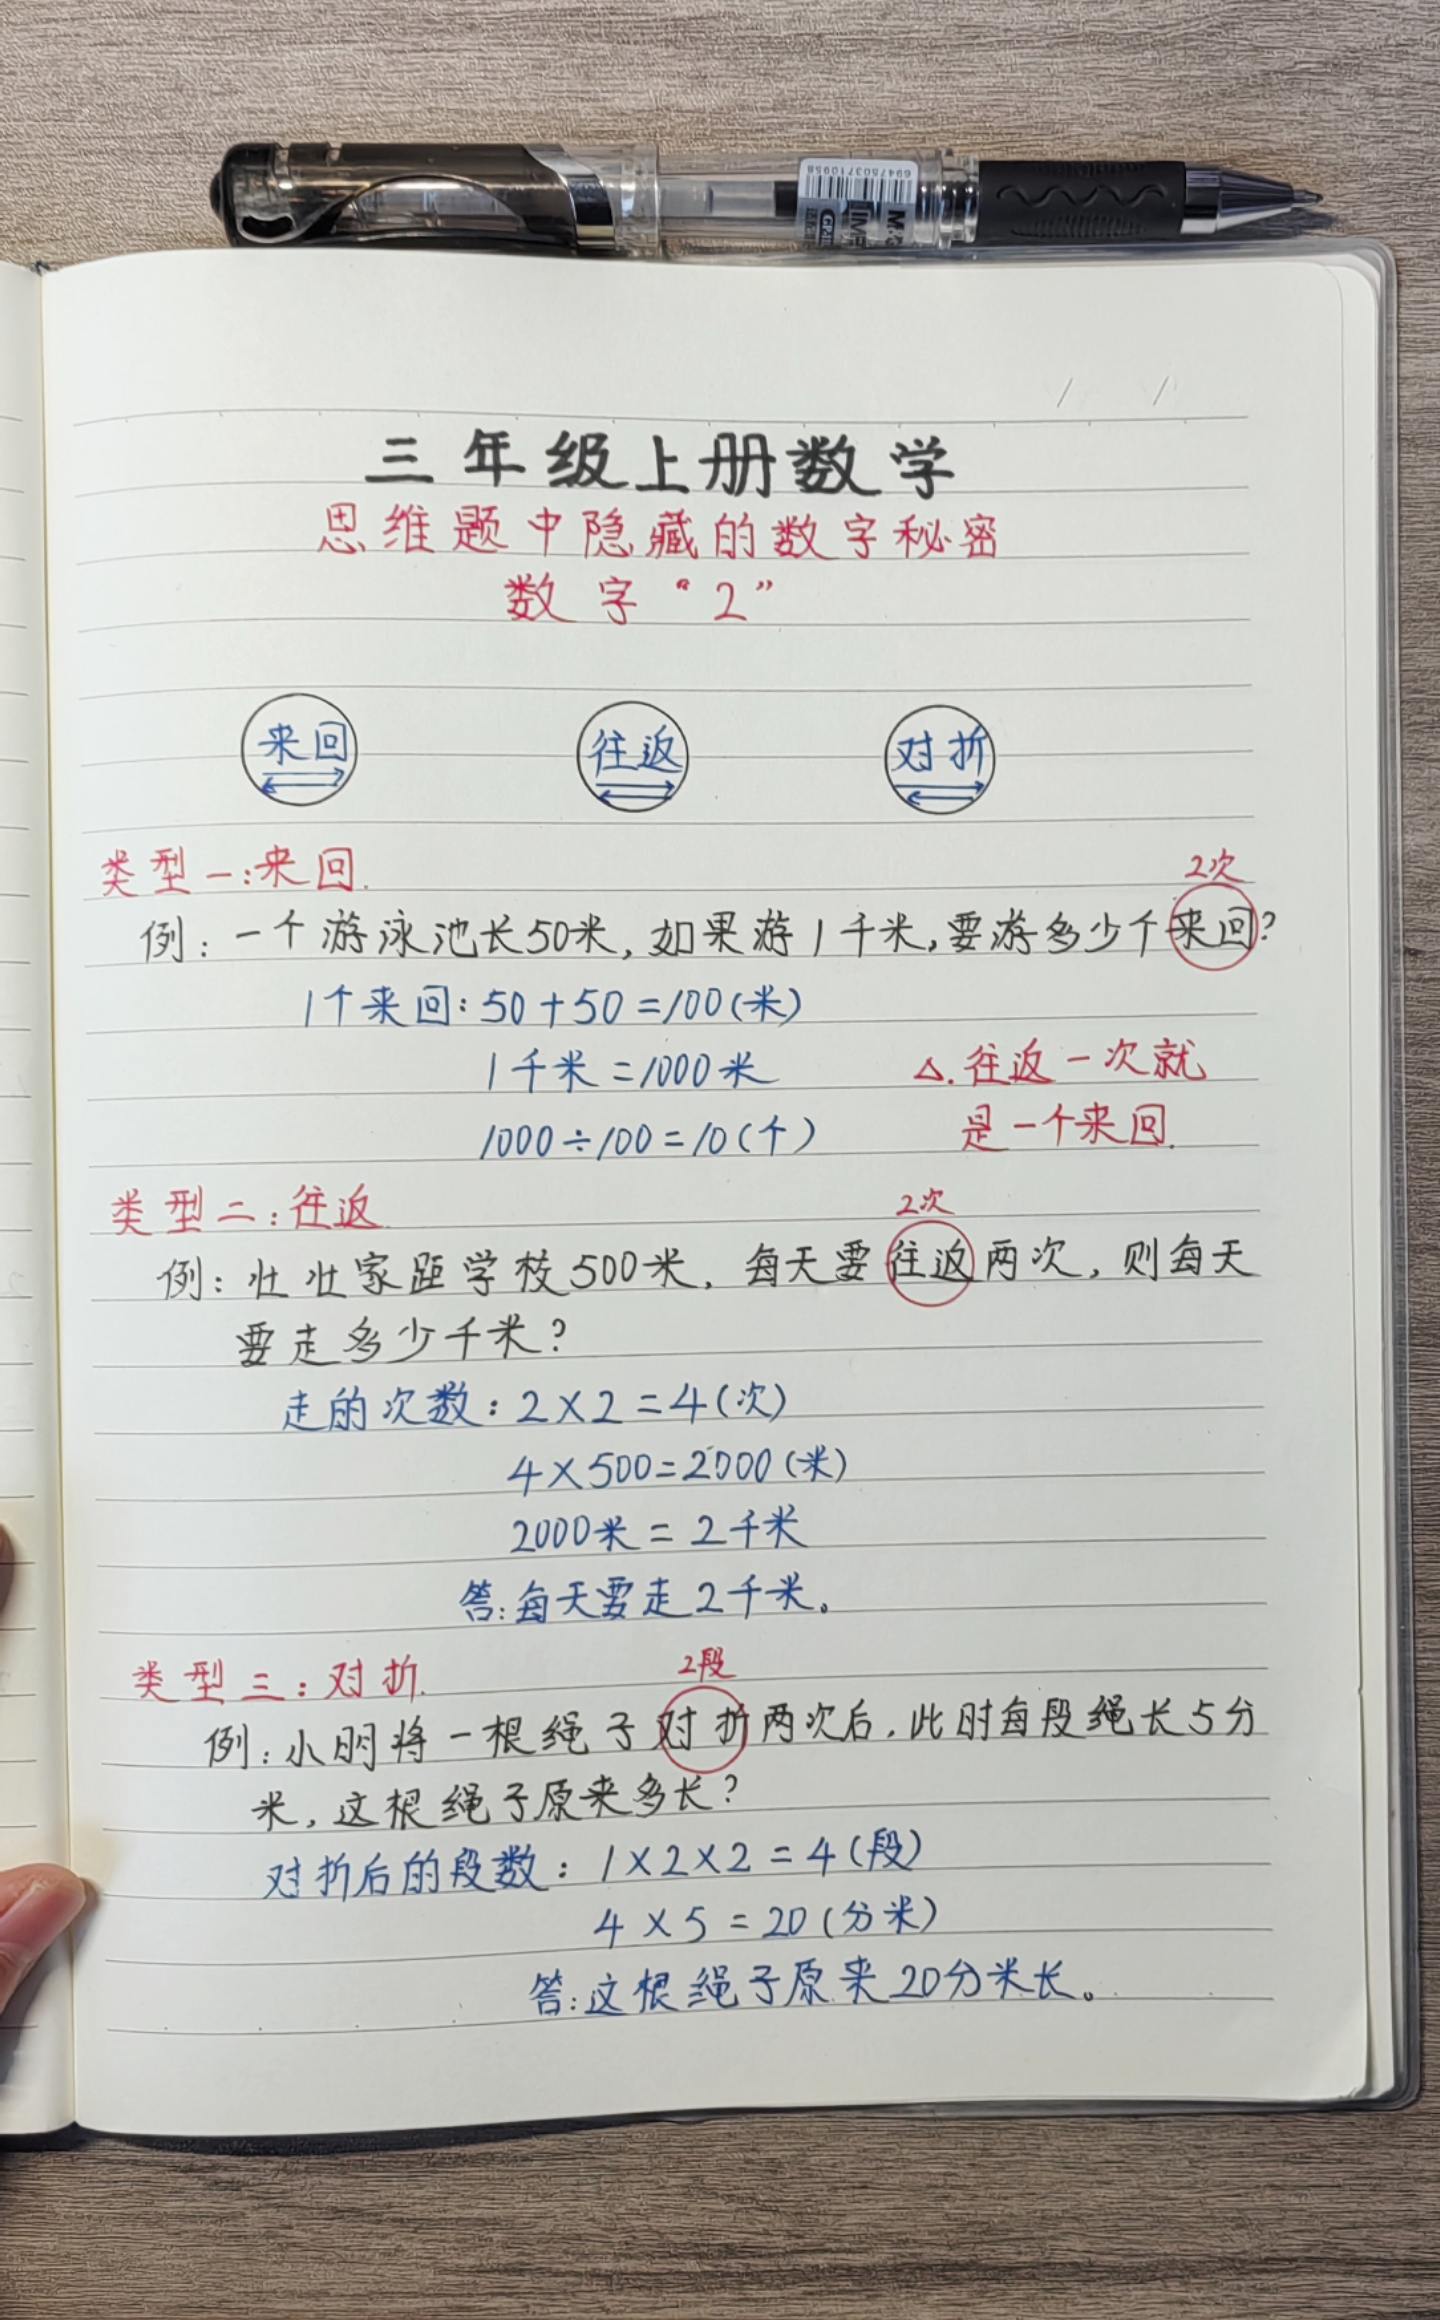 6947503710958
三年级上册数学
思维题中隐藏的数字秘密
数字“2”
来回 往返 对折
类型一:来回.
2次
例:一个游泳池长50米,如果游1千米,要游多少个来回?
1个来回:50+50=100(米)
1千米=1000米
△.往返一次就
1000÷100=10(个)
是一个来回.
类型二:往返
2次
例:壮壮家距学校500米,每天要往返两次,则每天
要走多少千米?
走的次数:2×2=4(次)
4×500=2000(米)
2000米=2千米
答:每天要走2千米。
类型三:对折.
2段
例:小明将一根绳子对折两次后,此时每段绳长5分
米,这根绳子原来多长?
对折后的段数:1×2×2=4(段)
4×5=20(分米)
答:这根绳子原来20分米长。